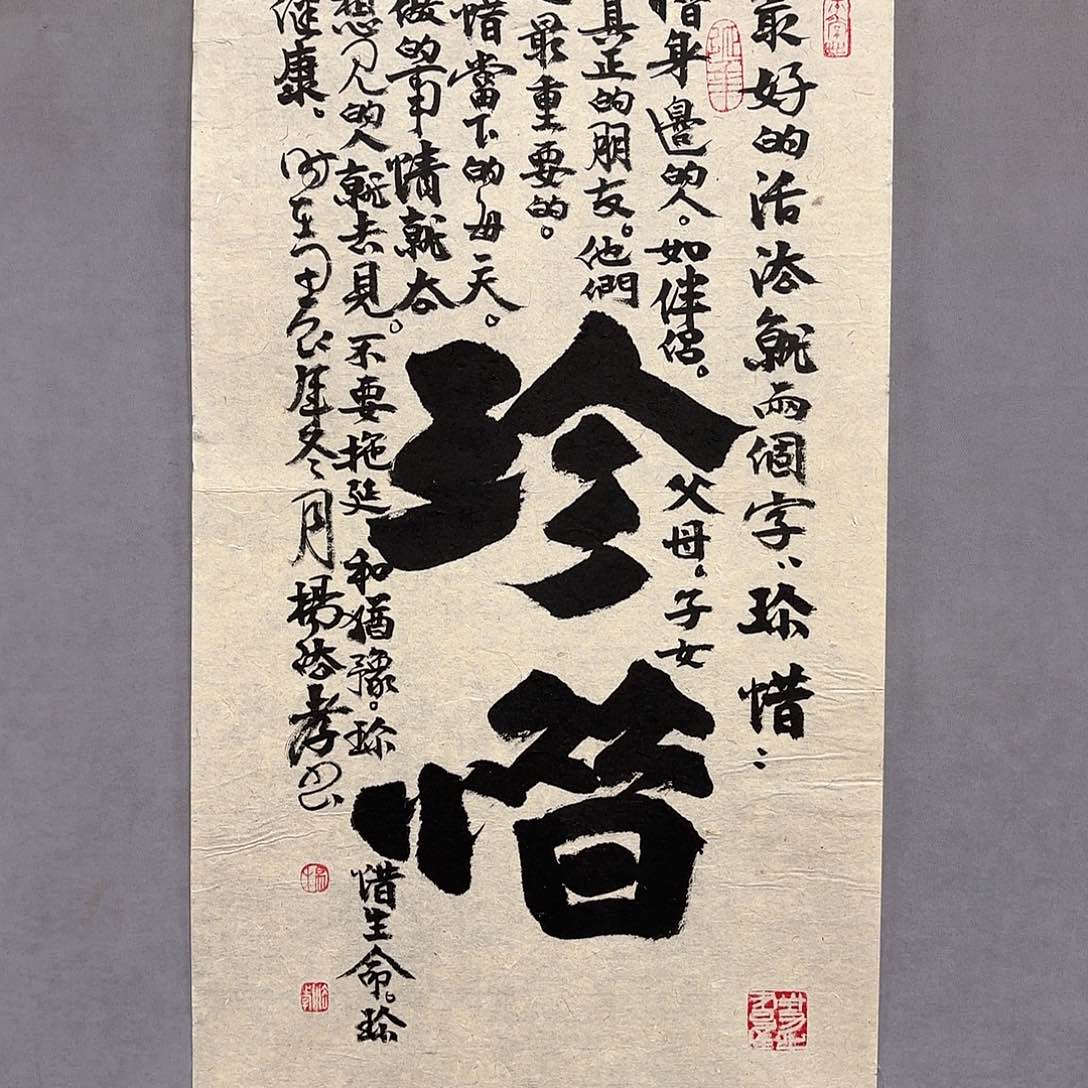 珍惜
最好的活法就兩個字：珍惜：
惜身邊的人。如伴侶。父母。子女
真正的朋友。他們
最重要的。
惜當下的每一天。
做的事情就去
想见的人就去見。不要拖延和猶豫。珍惜生命。珍
健康。時在甲辰年冬月楊法孝书